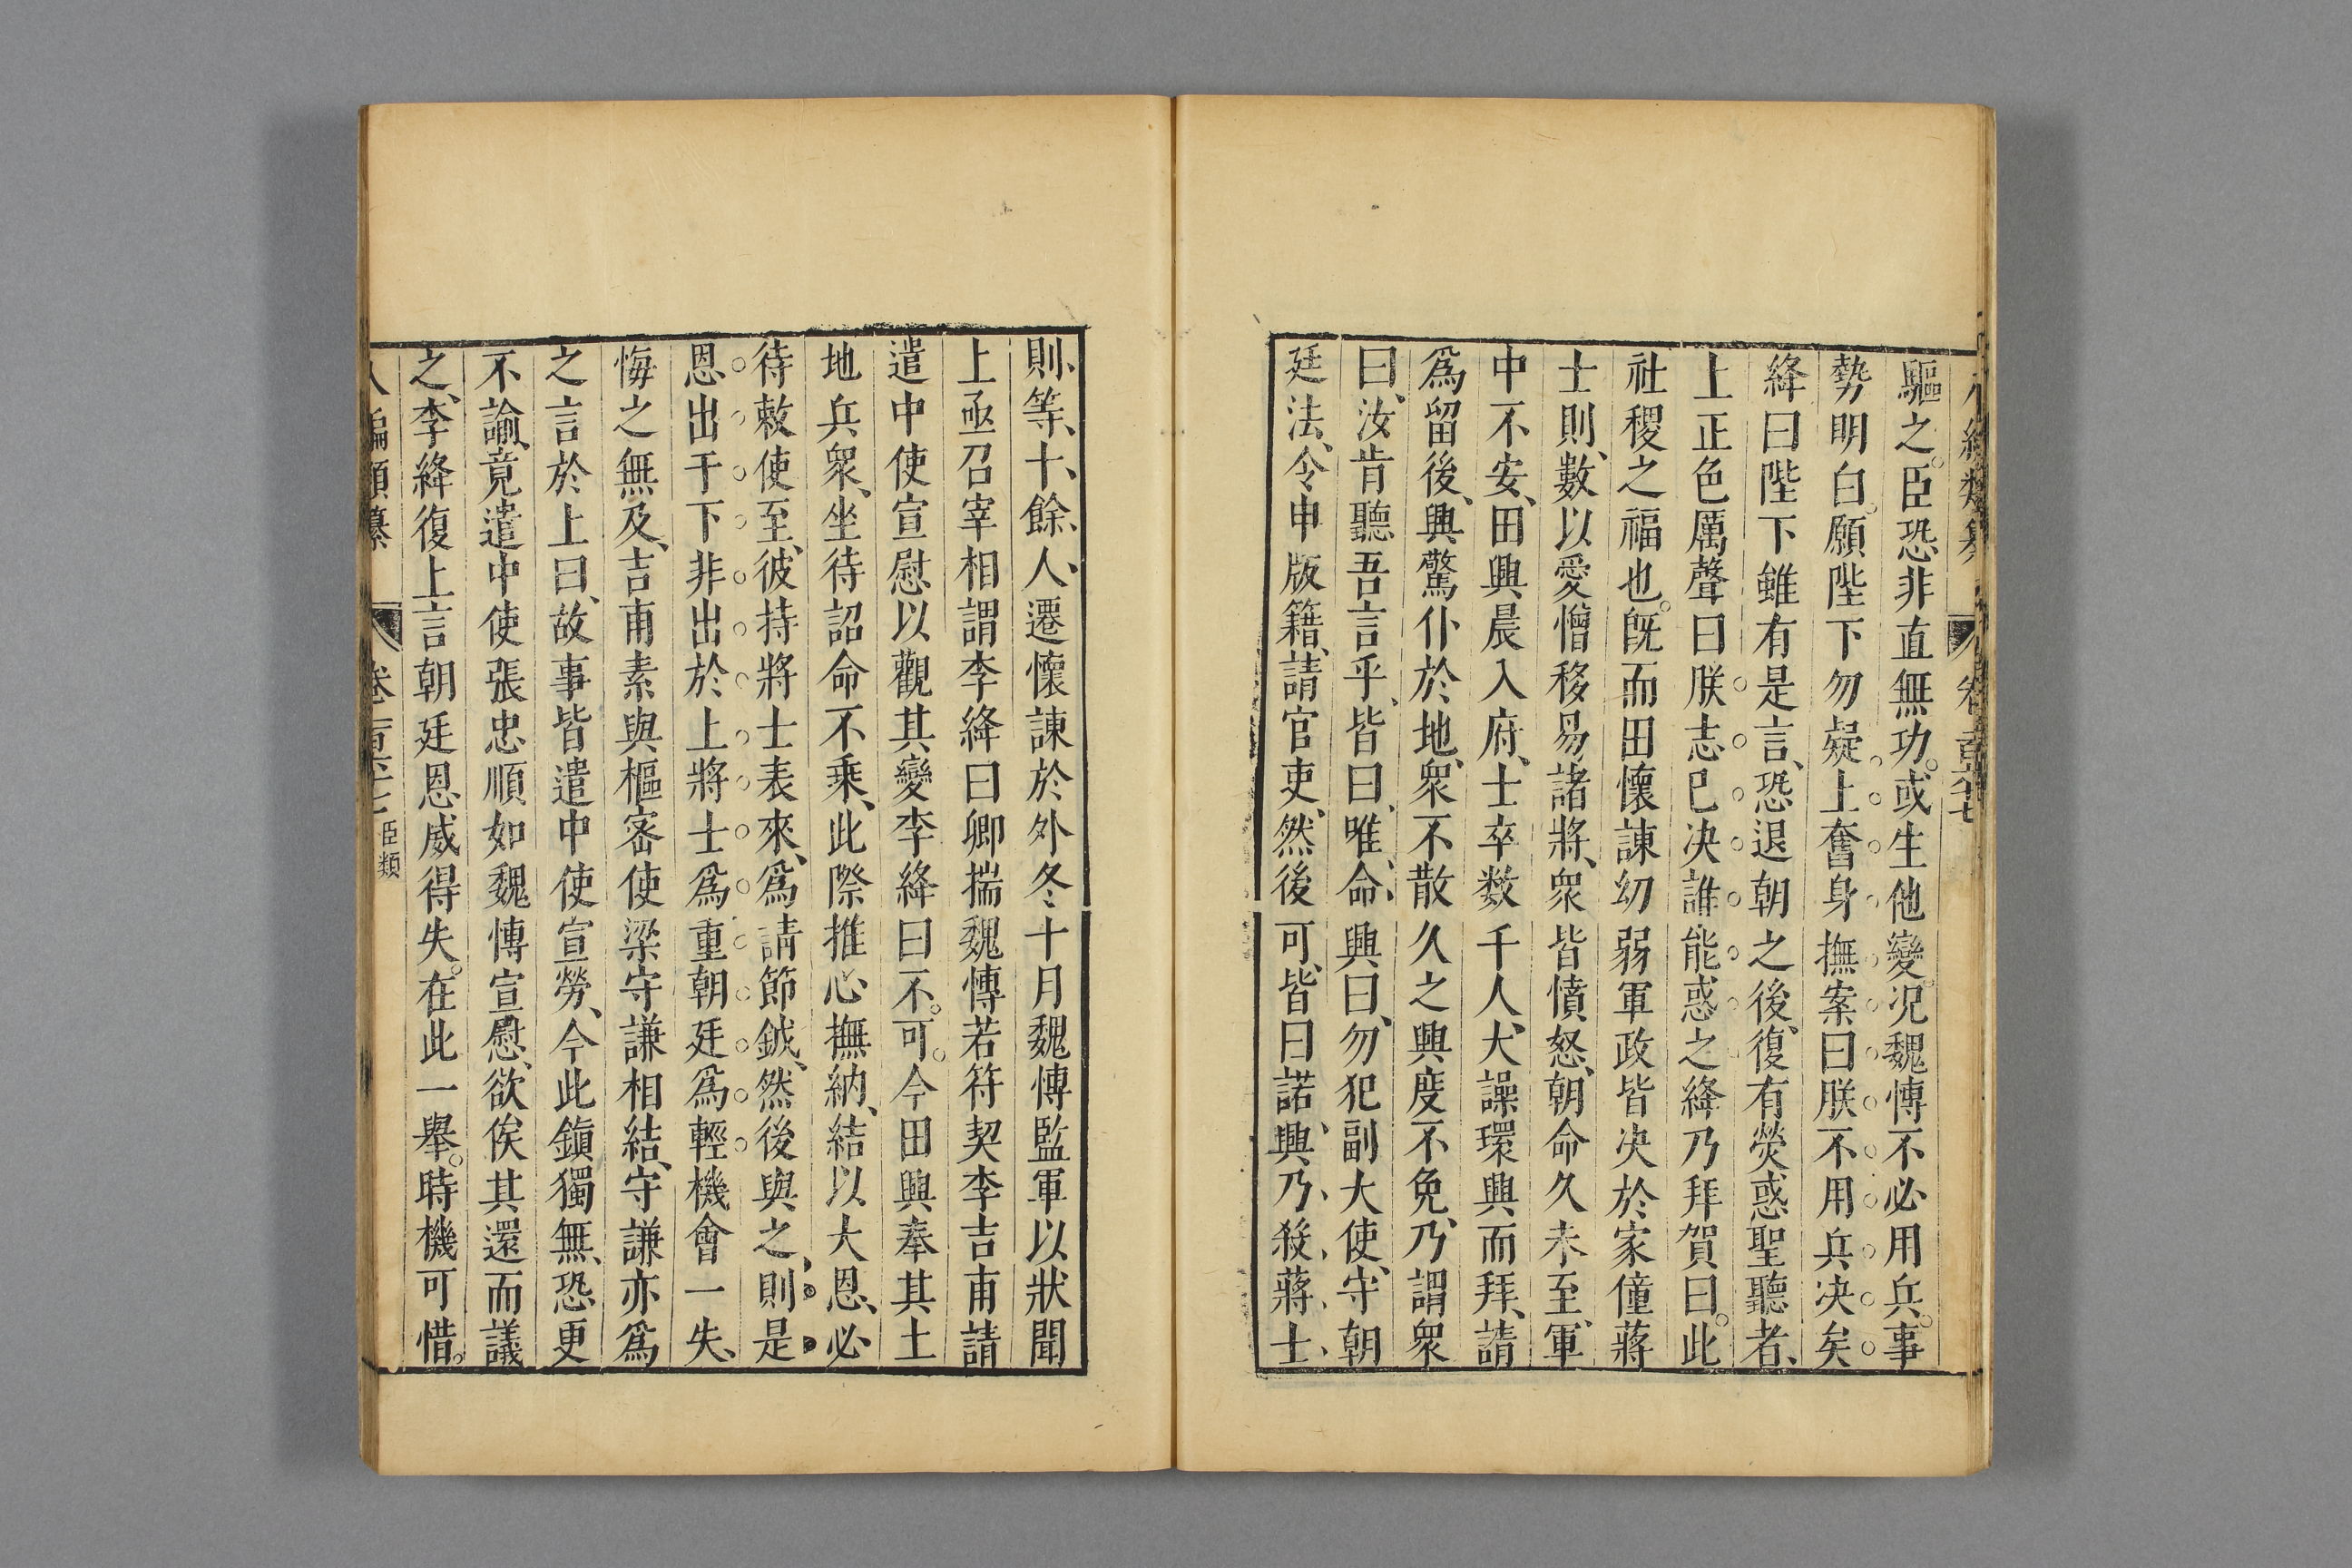 驅之。臣恐非直無功。或生他變。況魏慱不必用兵。事
勢明白。願陛下勿疑上奮身撫案曰朕不用兵决矣
絳曰陛下雖有是言、恐退朝之後、復有熒惑聖聽者、
上正色厲聲曰朕志已决誰能惑之絳乃拜賀曰。此
社稷之福也。旣而田懷諫幼弱軍政皆决於家僮蔣
士則、數以愛憎移易諸將、衆皆憤怒、朝命久未至、軍
中不安、田興晨入府、士卒数千人、大譟環興而拜、請
爲留後、興驚仆於地、衆不散久之興度不免、乃謂衆
曰、汝肯聽吾言乎、皆曰、唯、命、興曰、勿犯副大使、守朝
廷法、令申版籍、請官吏、然後可、皆曰諾、興乃、殺、蔣、士、
則、等、十、餘、人、遷懷諫於外冬十月魏慱監軍以狀聞
上亟召宰相謂李絳曰卿揣魏慱若符契李吉甫請
遣中使宣慰以觀其變李絳曰不。可。今田興奉其土
地兵衆、坐待詔命不乗、此際推心撫納、結以大恩、必
待敕使至、彼持將士表來、爲請節鉞、然後與之、則是
恩出于下非出於上將士爲重朝廷爲輕機會一失、
悔之無及、吉甫素與樞密使梁守謙相結、守謙亦爲
之言於上曰、故事皆遣中使宣勞、今此鎭獨無、恐更
不諭、竟遣中使張忠順如魏慱宣慰、欲俟其還而議
之、李絳復上言朝廷恩威得失。在此一舉。時機可惜。
八編類纂 卷一百六十七 臣類